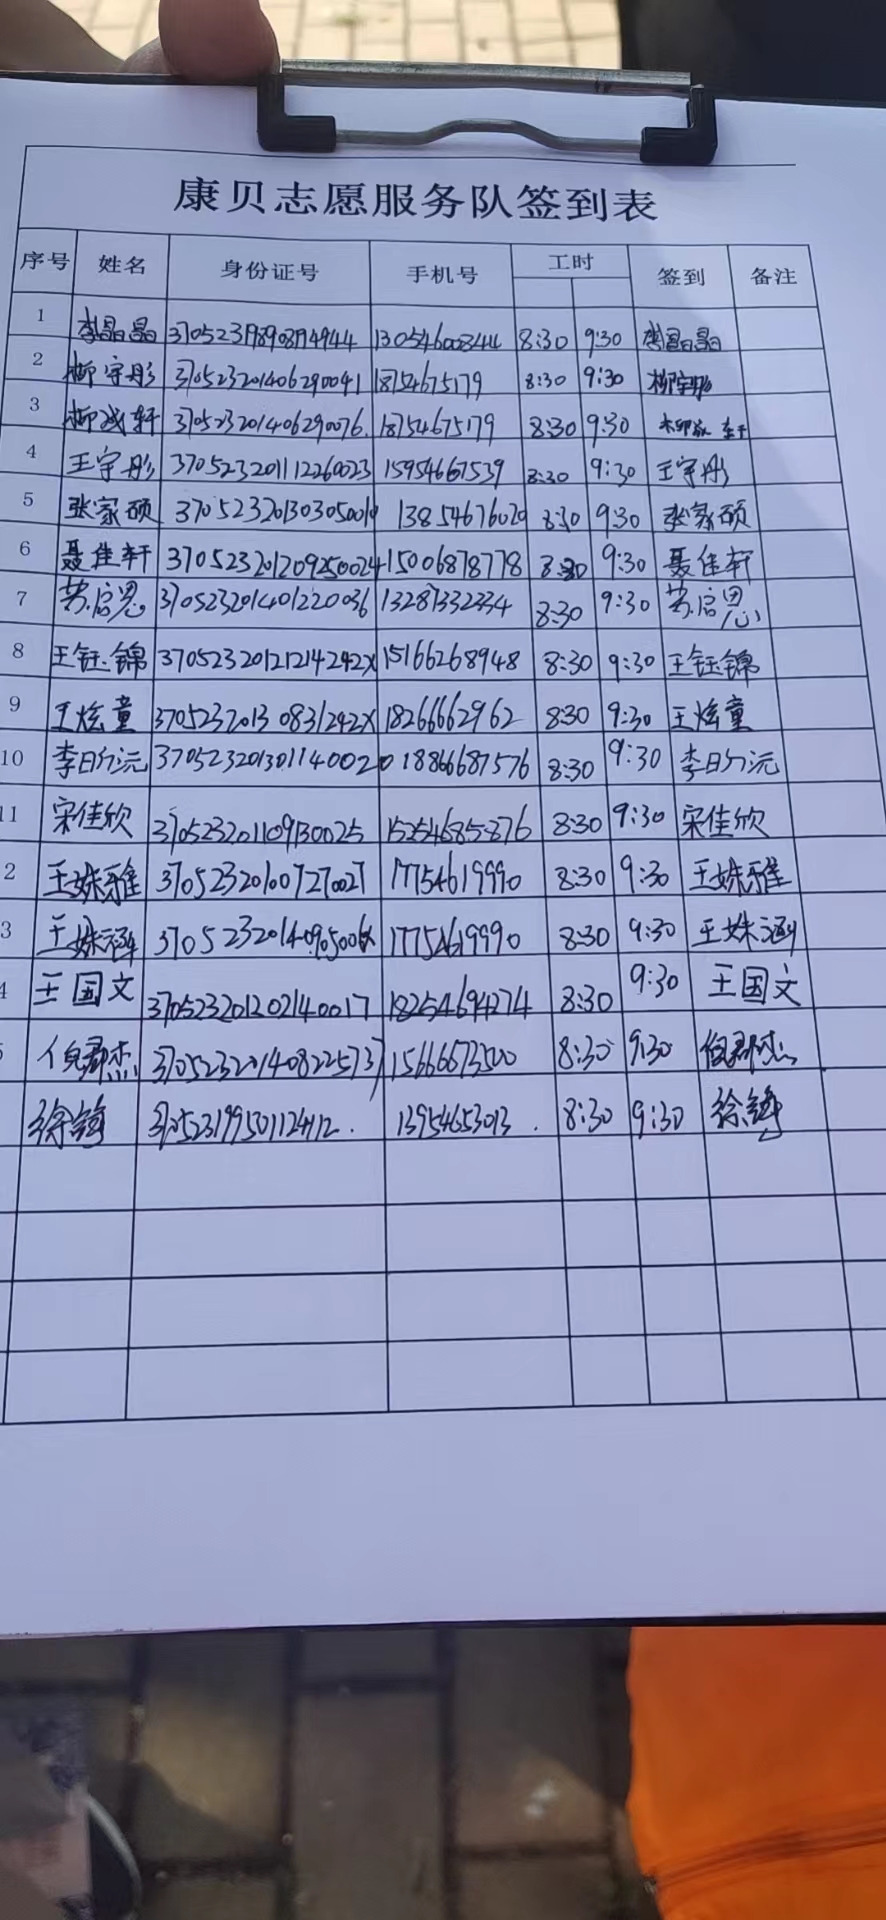 康贝志愿服务队签到表
序号 姓名 身份证号 手机号 工时 签到 备注
1 李晶晶 13054600344 8:30 9:30 李晶晶
2 柳宇彤 370523201406290041 18754675179 8:30 9:30 柳宇彤
3 柳 轩 370523201406290076. 18754675179 8:30 9:30 柳 轩
4 王宇彤 370523201112260023 15954667539 8:30 9:30 王宇彤
5 张家硕 13854676020 8:30 9:30 张家硕
6 聂佳轩 370523201209250024 15006878778 8:30 9:30 聂佳轩
7 苏启恩 370523201401220036 13287332334 8:30 9:30 苏启恩
8 王钰锦 37052320121214242X 15166268948 8:30 9:30 王钰锦
9 王炫童 37052320130831242X 18266662962 8:30 9:30 王炫童
10 李昀沅 370523201301140020 18866687576 8:30 9:30 李昀沅
11 宋佳欣 370523201109130025 15254685876 8:30 9:30 宋佳欣
2 王姝雅 370523201007270027 17754619990 8:30 9:30 王姝雅
3 王姝涵 17754619990 8:30 9:30 王姝涵
4 王国文 370523201202140017 18254694274 8:30 9:30 王国文
倪郡杰 370523201408225737 15666673500 8:30 9:30 倪郡杰
徐 13954653013. 8:30 9:30 徐